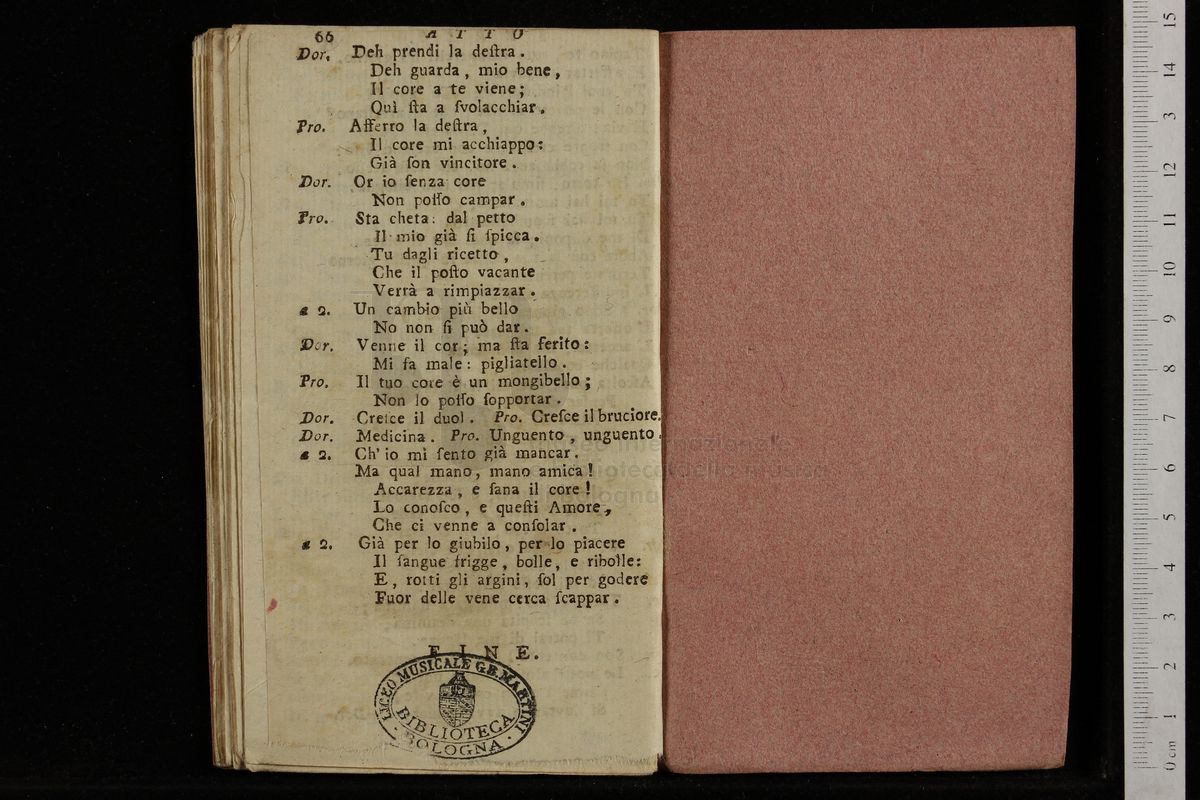 66 ATTO
Dor. Deh prendi la deſtra.
Deh guarda, mio bene,
Il core a te viene;
Quì ſta a ſvolacchiar.
Pro. Afferro la deſtra,
Il core mi acchiappo:
Già ſon vincitore.
Dor. Or io ſenza core
Non poſſo campar.
Pro. Sta cheta: dal petto
Il mio già ſi ſpicca.
Tu dagli ricetto,
Che il poſto vacante
Verrà a rimpiazzar.
a 2. Un cambio più bello
No non ſi può dar.
Dor. Venne il cor; ma ſta ferito:
Mi fa male: pigliatello.
Pro. Il tuo core è un mongibello;
Non lo poſſo ſopportar.
Dor. Creſce il duol. Pro. Creſce il bruciore.
Dor. Medicina. Pro. Unguento, unguento.
a 2. Ch' io mi ſento già mancar.
Ma qual mano, mano amica!
Accarezza, e ſana il core!
Lo conoſco, e queſti Amore,
Che ci venne a conſolar.
a 2. Già per lo giubilo, per lo piacere
Il ſangue frigge, bolle, e ribolle:
E, rotti gli argini, ſol per godere
Fuor delle vene cerca ſcappar.
FINE.
LICEO MUSICALE G.B. MARTINI
BIBLIOTECA
BOLOGNA
Museo internazionale
e biblioteca della musica
Bologna
0 cm 1 2 3 4 5 6 7 8 9 10 11 12 13 14 15